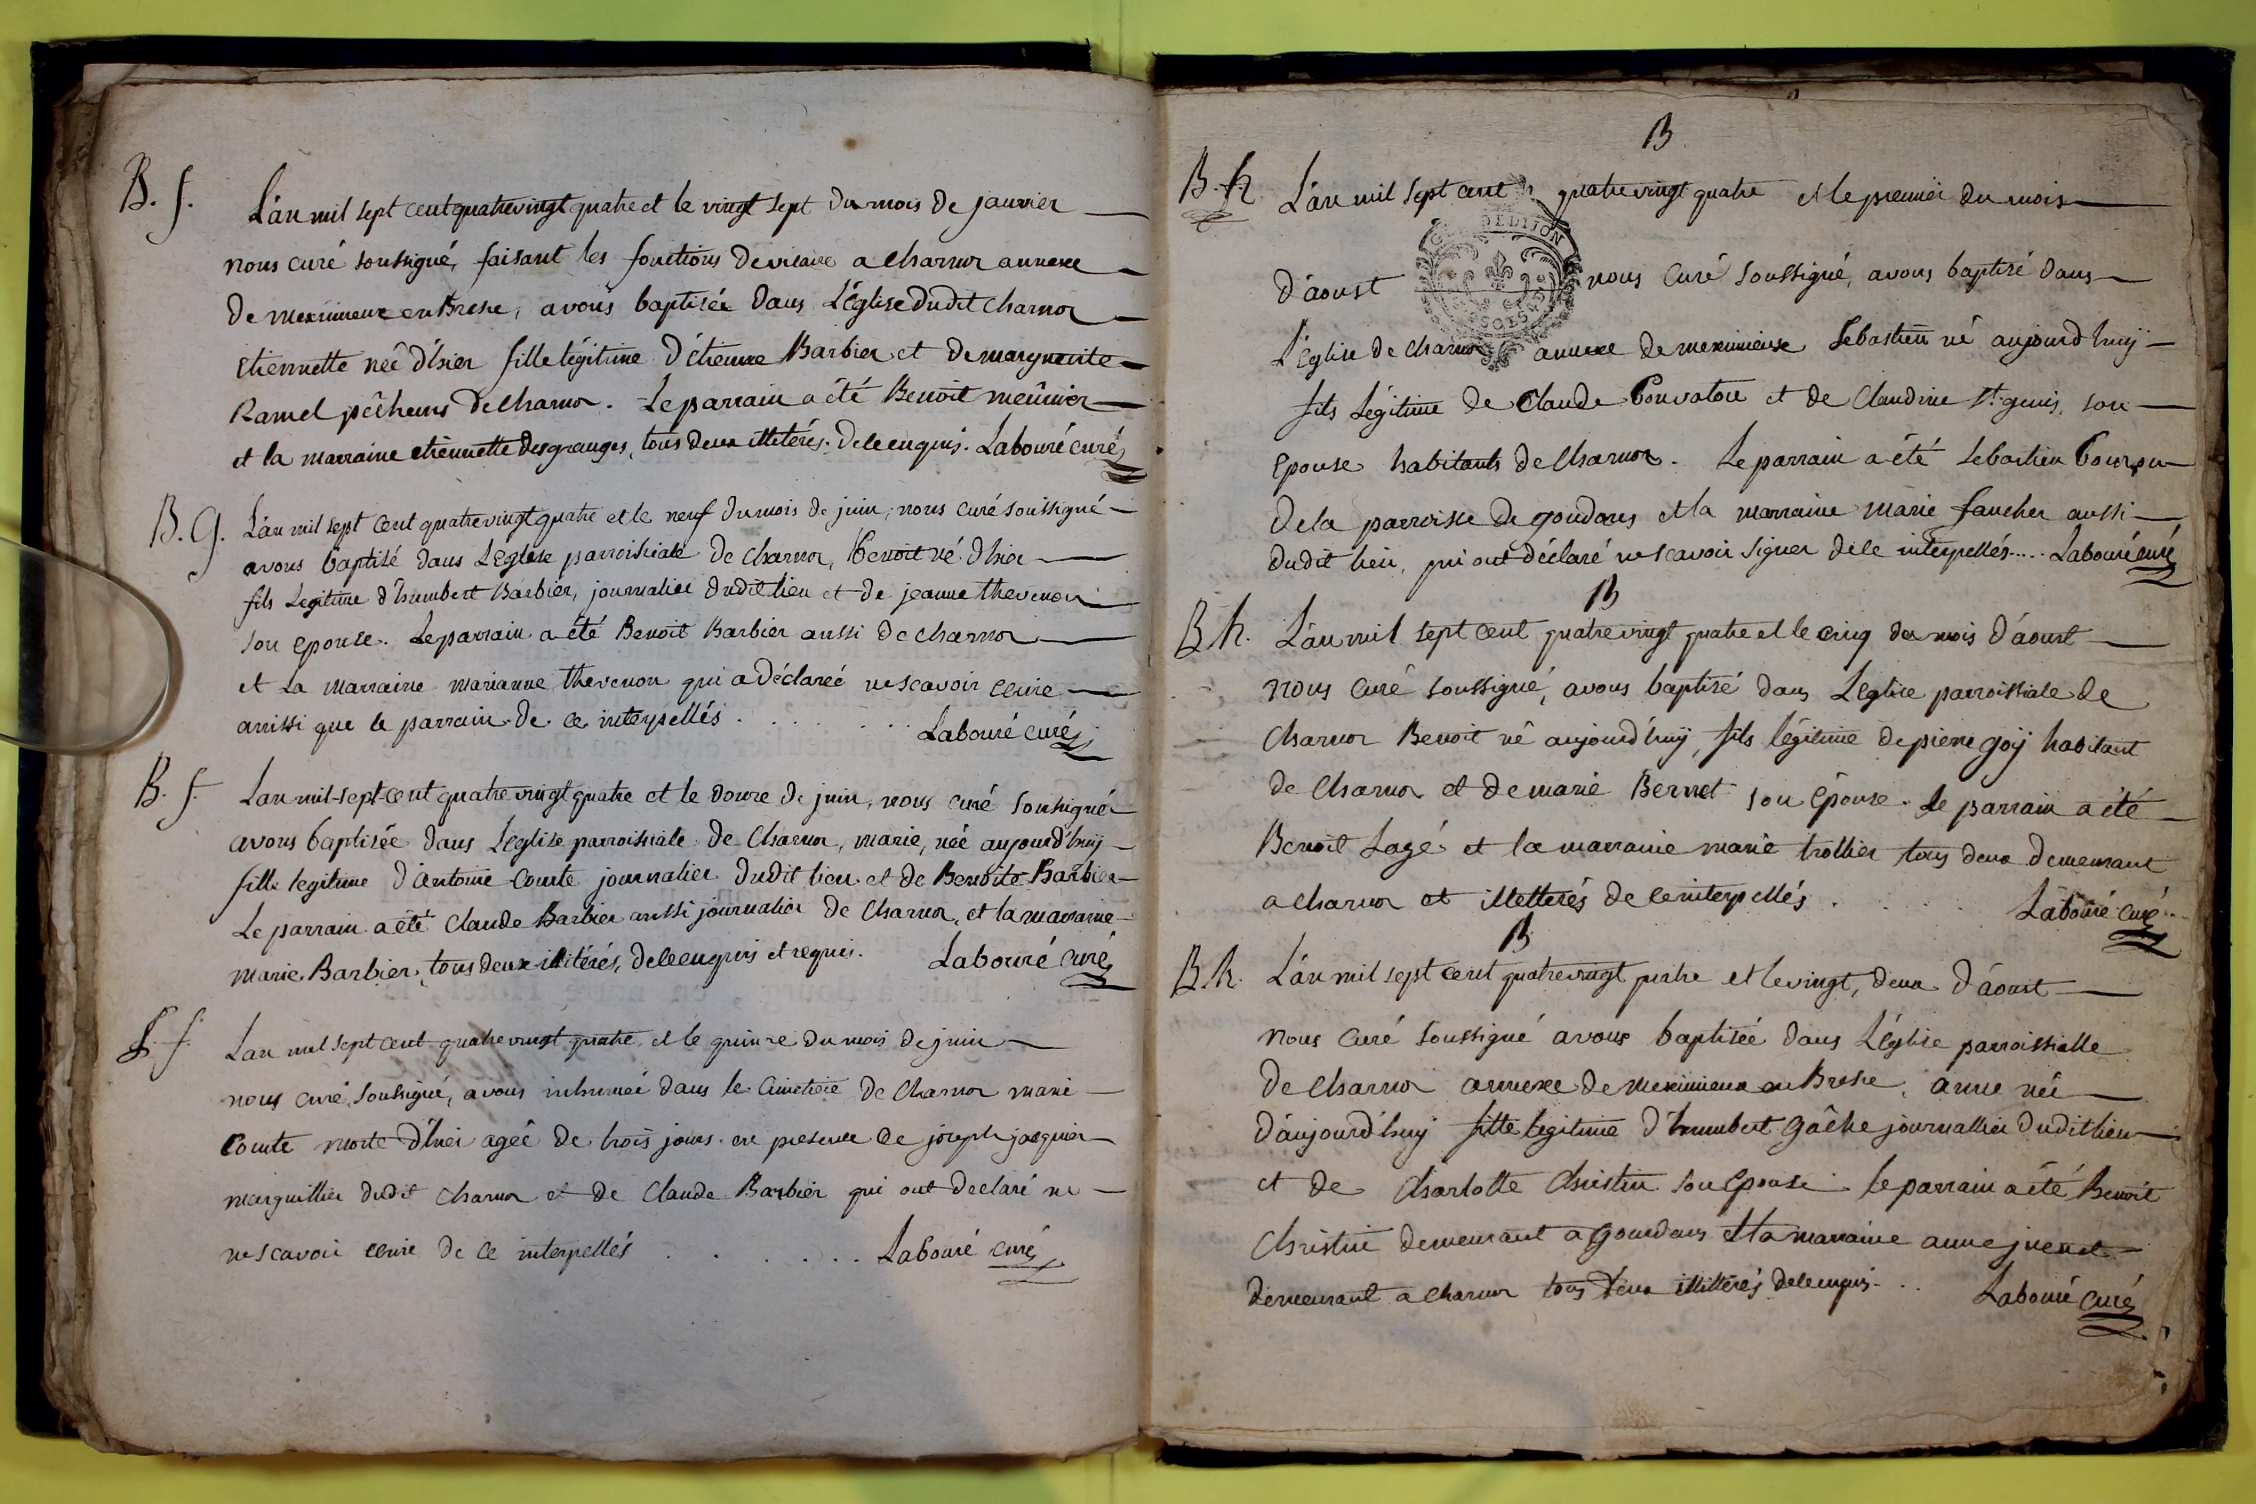 B. f.
L'an mil sept cent quatrevingt quatre et le vingt sept du mois de janvier
nous curé soussigné, faisant les fonctions de vicaire a Charnor annexe
de meximieux en Bresse, avons baptisée dans L'Eglise dudit Charnor
Etiennette neé d'hier fille légitime d'étienne Barbier et de marguerite
Ramel pêcheurs de Charnor. Le parrain a été Benoit meûnier
et la marraine etiennette desgranges, tous deux illiterés. de ce enquis. Labouré curé
B. G.
L'an mil sept cent quatrevingt quatre et le neuf du mois de juin, nous curé soussigné
avons baptisé dans L'Eglise parroissiale de Charnor, Benoit né d'hier
fils Legitime d'humbert Barbier, journalier dudit lieu et de jeanne thevenon
son epouse. Le parrain a été Benoit Barbier aussi de charnor
et La marraine marianne thevenon qui a déclareé ne scavoir ecrire
aussi que le parrain de ce interpellés . . . . . . . Labouré curé
B. f.
L'an mil-sept-cent quatre vingt quatre et le douze de juin, nous curé soussigné
avons baptisée dans L'eglise parroissiale de Charnor, marie, née aujourd'huy
fille legitime d'antoine Comte journalier dudit lieu et de Benoite Barbier
Le parrain a été Claude Barbier aussi journalier de Charnor, et la marraine
marie Barbier, tous deux illitérés, de ce enquis et requis. Labouré curé
S. f.
L'an mil sept cent quatre vingt quatre et le quinze du mois de juin
nous curé soussigné, avons inhumeé dans le Cimetiere de Charnor marie
Comte morte d'hier ageé de trois jours en presence de joseph jacquier
marguillier dudit Charnor et de Claude Barbier qui ont declaré ne
ne scavoir ecrire de ce interpellés . . . . . . Labouré curé
B
B. h.
L'an mil sept cent quatrevingt quatre et le premier du mois
d'aoust nous Curé soussigné, avons baptizé dans
L'Eglise de Charnor annexe de meximieux Sebastien né aujourd'huy
fils Légitime de Claude et de Claudine St. genis, son
epouse habitants de Charnor. Le parrain a été Sebastien
de la parroisse de gourdans et la marraine marie faucher aussi
dudit lieu, qui ont déclaré ne scavoir signer de ce interpellés.... Labouré curé
B
B h.
L'an mil sept cent quatrevingt quatre et le cinq du mois d'aoust
nous curé soussigné, avons baptizé dans L'eglise parroissiale de
Charnor Benoit né aujourd'huy, fils légitime de pierre goÿ habitant
de Charnor et de marie Bernet son épouse. Le parrain a été
Benoit Lagé et la marraine marie trollier tous deux demeurant
a Charnor et illetterés de ce interpellés . . . . Labouré curé
B
B. h.
L'an mil sept cent quatrevingt quatre et le vingt, deux d'aoust
nous curé soussigné avons baptisée dans L'église parroissialle
de Charnor annexe de meximieux en Bresse, anne née
d'aujourd'huy fille legitime d'humbert gâche journallier dudit lieu
et de Charlotte Christin son epouse. le parrain a été Benoit
Christin demeurant a gourdans et la marraine anne
demeurant a charnor tous deux illitterés de ce enquis. . Labouré curé